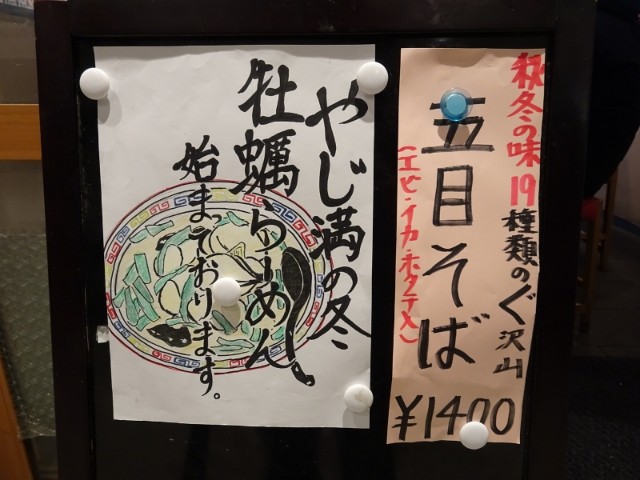 やじ満の冬
牡蠣らーめん
始まっております。
秋冬の味 19種類のぐ沢山
五目そば
(エビ・イカ・ホタテ入)
¥1400